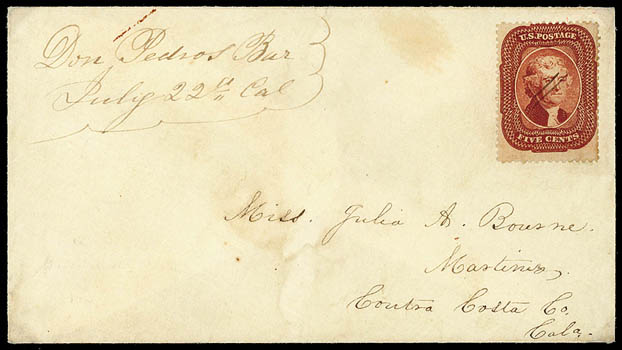 Don Pedros Bar
July 22th Cal
U.S. POSTAGE
FIVE CENTS
Miss. Julia A. Bourne.
Martines,
Contra Costa Co,
Cala.